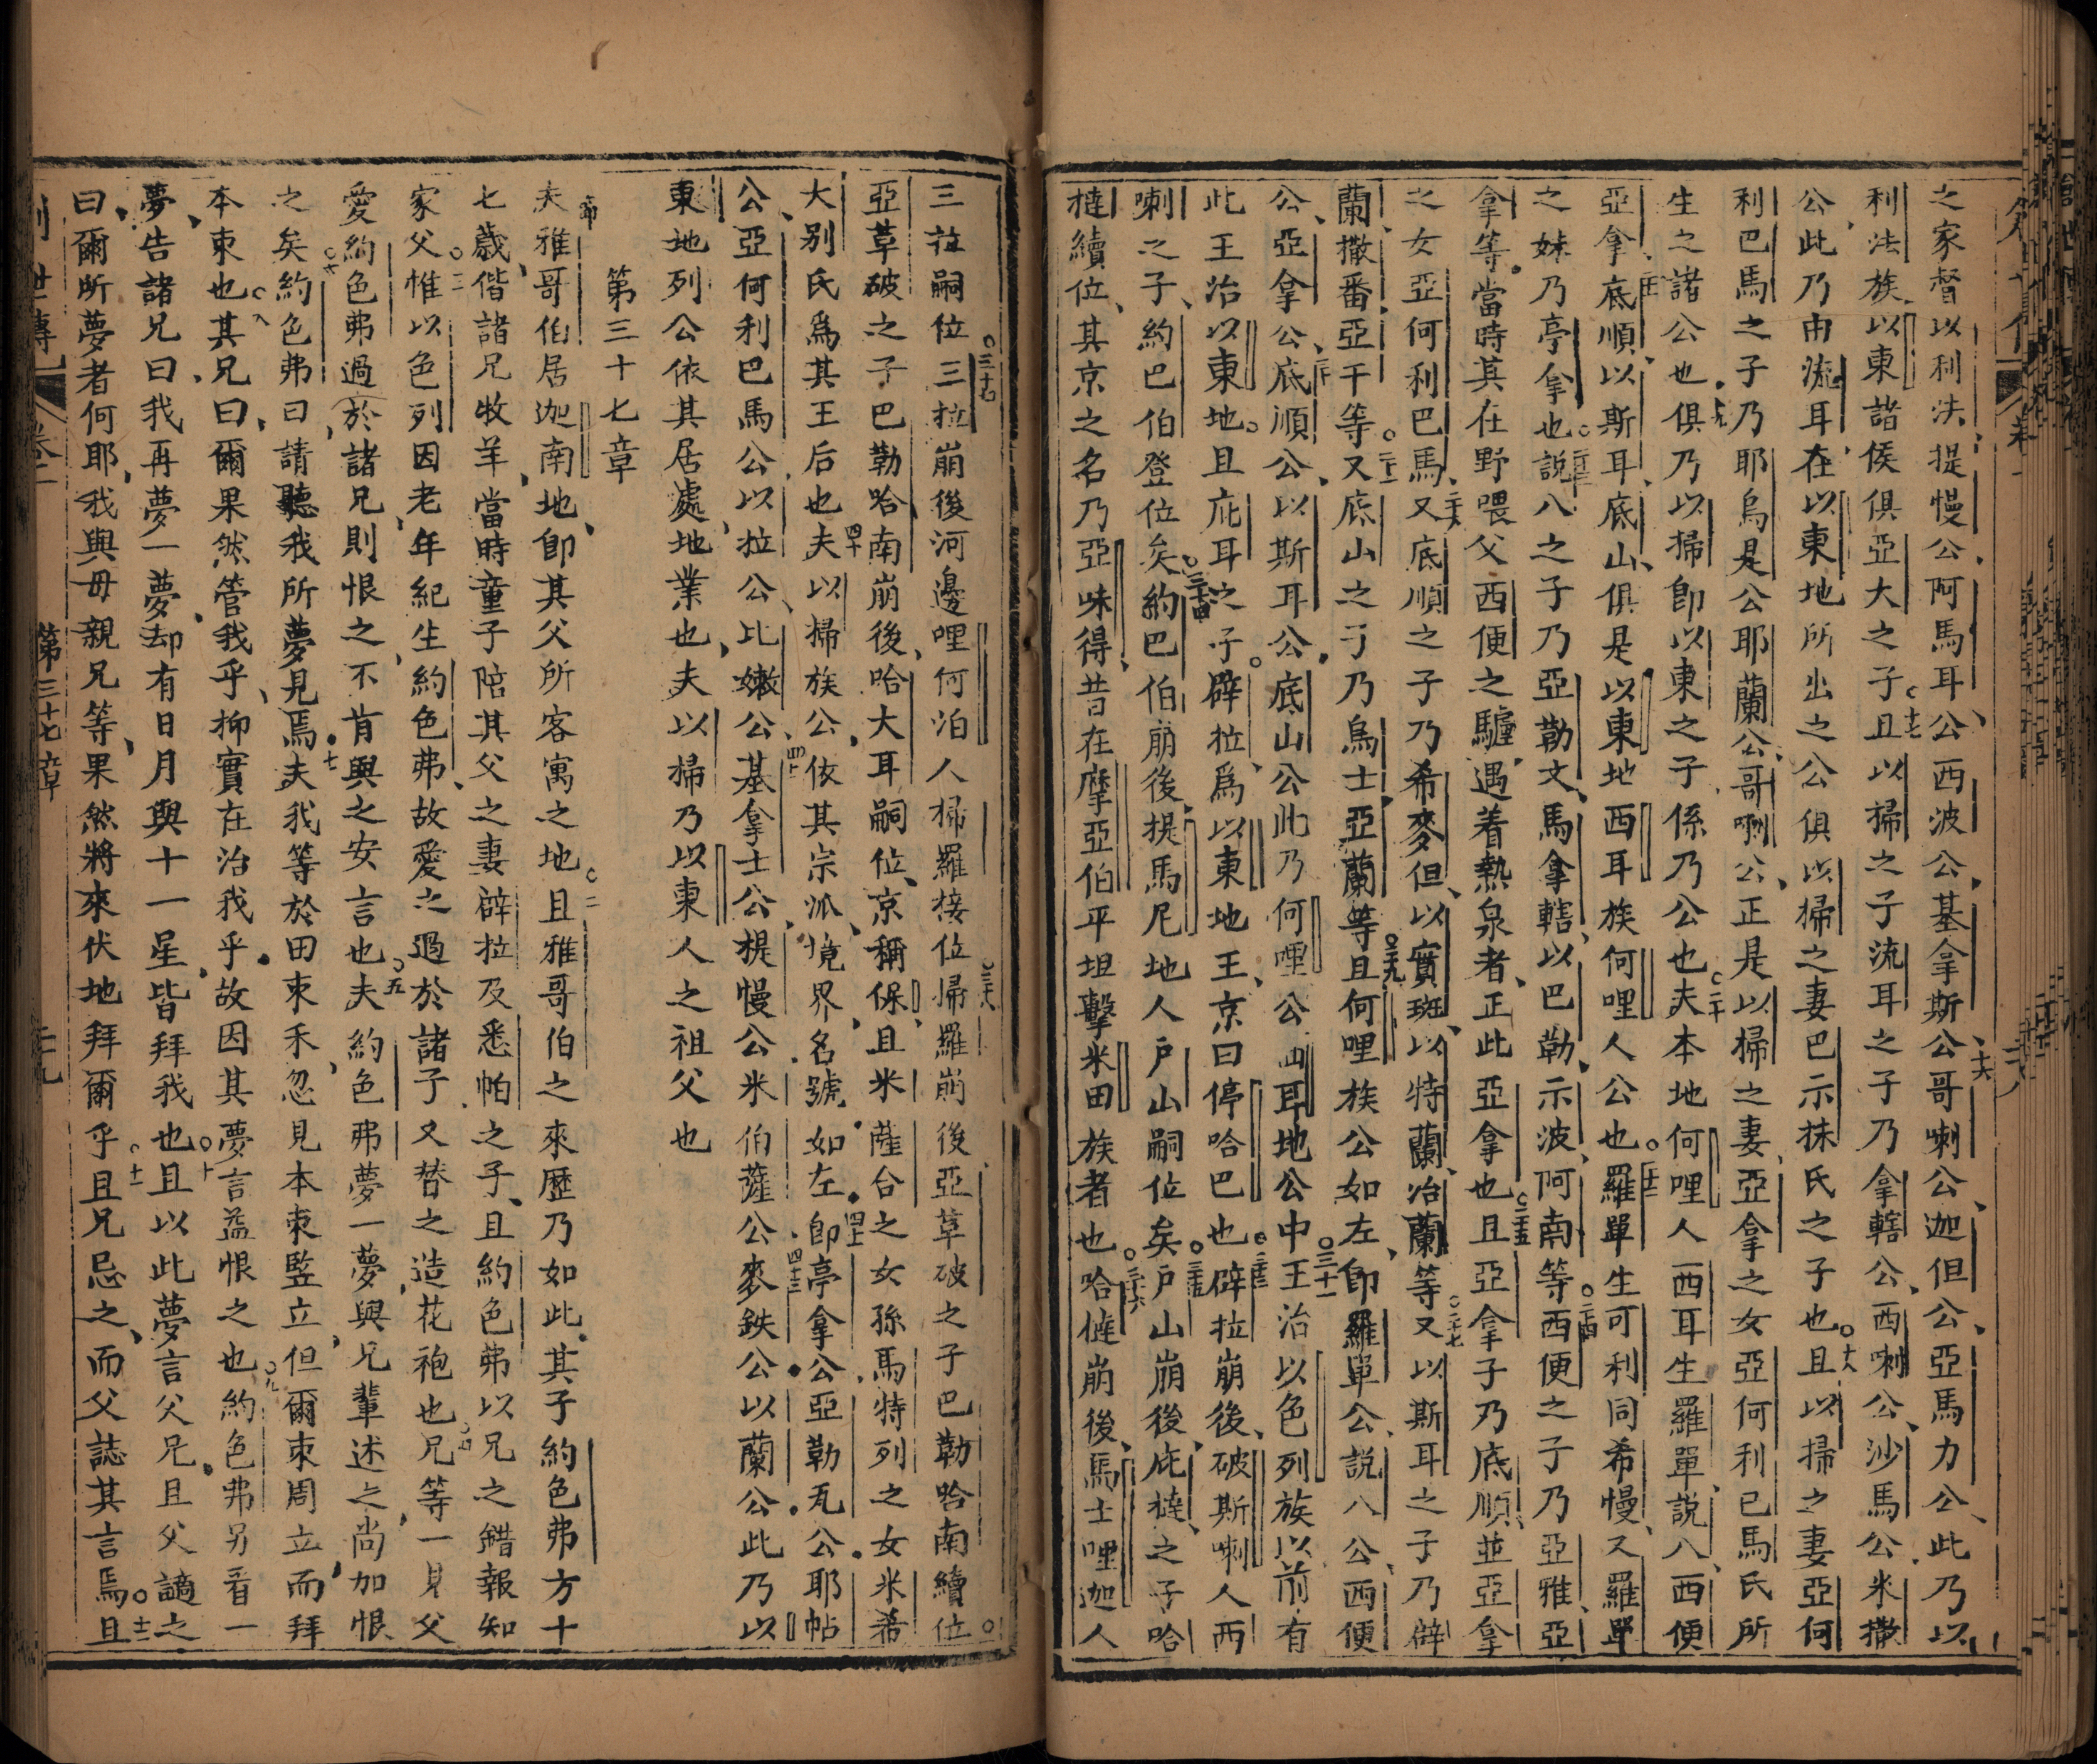 之家督以利法提慢公阿馬耳公西波公基拿斯公十六哥喇公迦但公亞馬力公此乃以
利法族以東諸侯俱亞大之子十七且以掃之子流耳之子乃拿轄公西喇公沙馬公米撒
公此乃由流耳在以東地所出之公俱以掃之妻巴示抹氏之子也十八且以掃之妻亞何
利巴馬之子乃耶烏是公耶蘭公哥喇公正是以掃之妻亞拿之女亞何利巴馬氏所
生之諸公也十九俱乃以掃即以東之子係乃公也二十夫本地何哩人西耳生羅單説八西便
亞拿二十一底順以斯耳底山俱是以東地西耳族何哩人公也二十二羅單生可利同希慢又羅單
之妹乃亭拿也二十三説八之子乃亞勒文馬拿轄以巴勒示波阿南等二十四西便之子乃亞雅亞
拿等當時其在野喂父西便之驢遇着熱泉者正此亞拿也二十五且亞拿子乃底順並亞拿
之女亞何利巴馬二十六又底順之子乃希麥但以實班以特蘭治蘭等二十七又以斯耳之子乃辟
蘭撒番亞干等二十八又底山之子乃烏士亞蘭等二十九且何哩族公如左即羅單公説八公西便
公亞拿公三十底順公以斯耳公底山公此乃何哩公西耳地公中三十一王治以色列族以前有
此王治以東地且庇耳之子辟拉爲以東地王京曰停哈巴也三十三辟拉崩後破斯喇人西
喇之子約巴伯登位矣三十四約巴伯崩後提馬尼地人戶山嗣位矣三十五戶山崩後庇撻之子哈
撻續位其京之名乃亞味得昔在摩亞伯平坦擊米田族者也三十六哈撻崩後馬士哩迦人
三拉嗣位三十七三拉崩後河邊哩何泊人掃羅接位三十八掃羅崩後亞革破之子巴勒哈南續位
亞革破之子巴勒哈南崩後哈大耳嗣位京稱保且米薩合之女孫馬特列之女米希
大別氏爲其王后也四十夫以掃族公依其宗派境界名號如左四十一即亭拿公亞勒瓦公耶帖
公亞何利巴馬公以拉公比嫩公四十二基拿士公提慢公米伯薩公四十三麥鉄公以蘭公此乃以
東地列公依其居處地業也夫以掃乃以東人之祖父也
第三十七章
一節夫雅哥伯居迦南地即其父所客寓之地二且雅哥伯之來歷乃如此其子約色弗方十
七歲偕諸兄牧羊當時童子陪其父之妻辟拉及悉帕之子且約色弗以兄之錯報知
家父三惟以色列因老年紀生約色弗故愛之過於諸子又替之造花袍也四兄等一見父
愛約色弗過於諸兄則恨之不肯與之安言也五夫約色弗夢一夢與兄輩述之尚加恨
之矣六約色弗曰請聽我所夢見焉七夫我等於田束禾忽見本束竪立但爾束周立而拜
本束也八其兄曰爾果然管我乎抑實在治我乎故因其夢言益恨之也九約色弗另看一
夢告諸兄曰我再夢一夢却有日月與十一星皆拜我也十且以此夢言父兄且父謫之
曰爾所夢者何耶我與母親兄等果然將來伏地拜爾乎十一且兄忌之而父誌其言焉十二且
創世傳 卷一 第三十七章 二十九